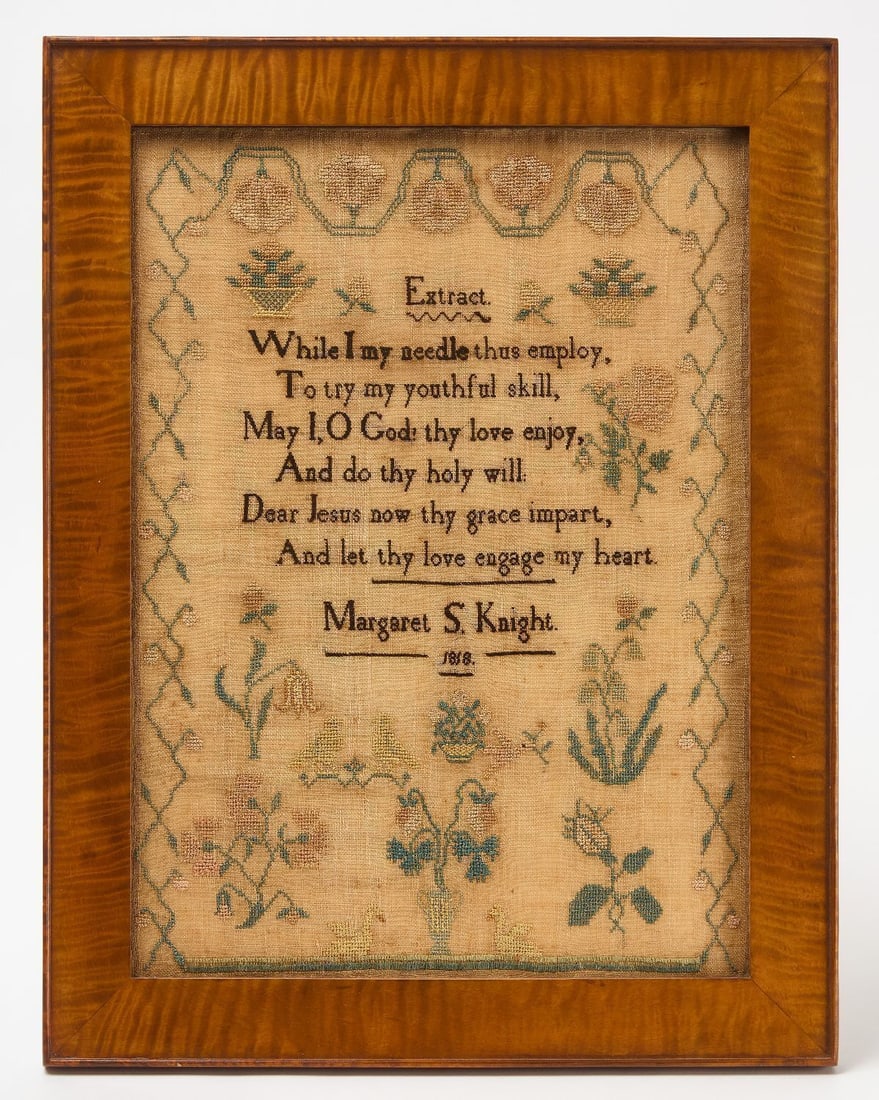 Extract.
While I my needle thus employ,
To try my youthful skill,
May I, O God! thy love enjoy,
And do thy holy will:
Dear Jesus now thy grace impart,
And let thy love engage my heart.
Margaret S. Knight.
1818.